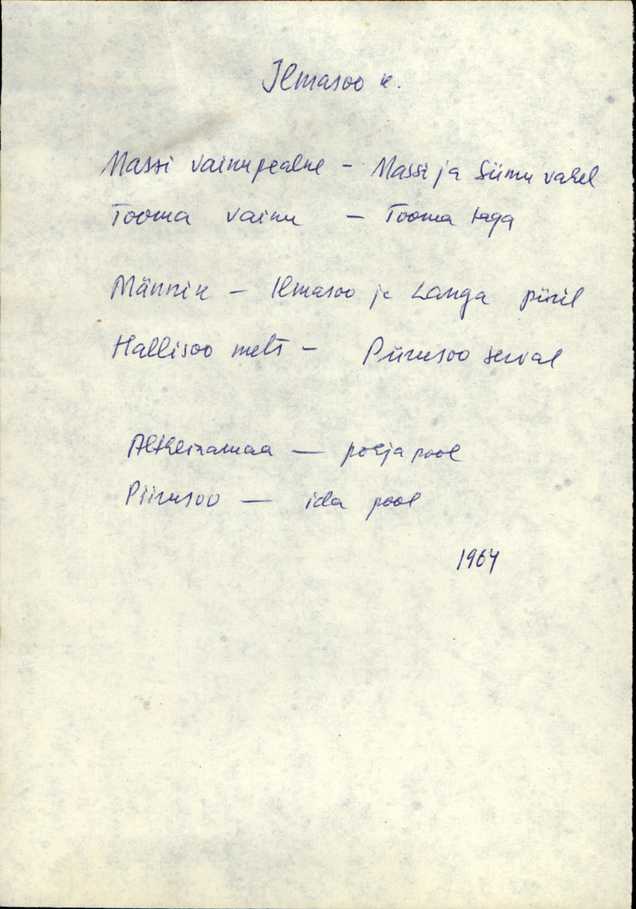 Ilmasoo k.
Massi vainupealne - Massi ja Siimu vahel
Tooma vainu - Tooma taga
Männik - Ilmasoo ja Langa piiril
Hallisoo mets - Piirusoo serval
 — põhja pool
Piirusoo — ida pool
1964